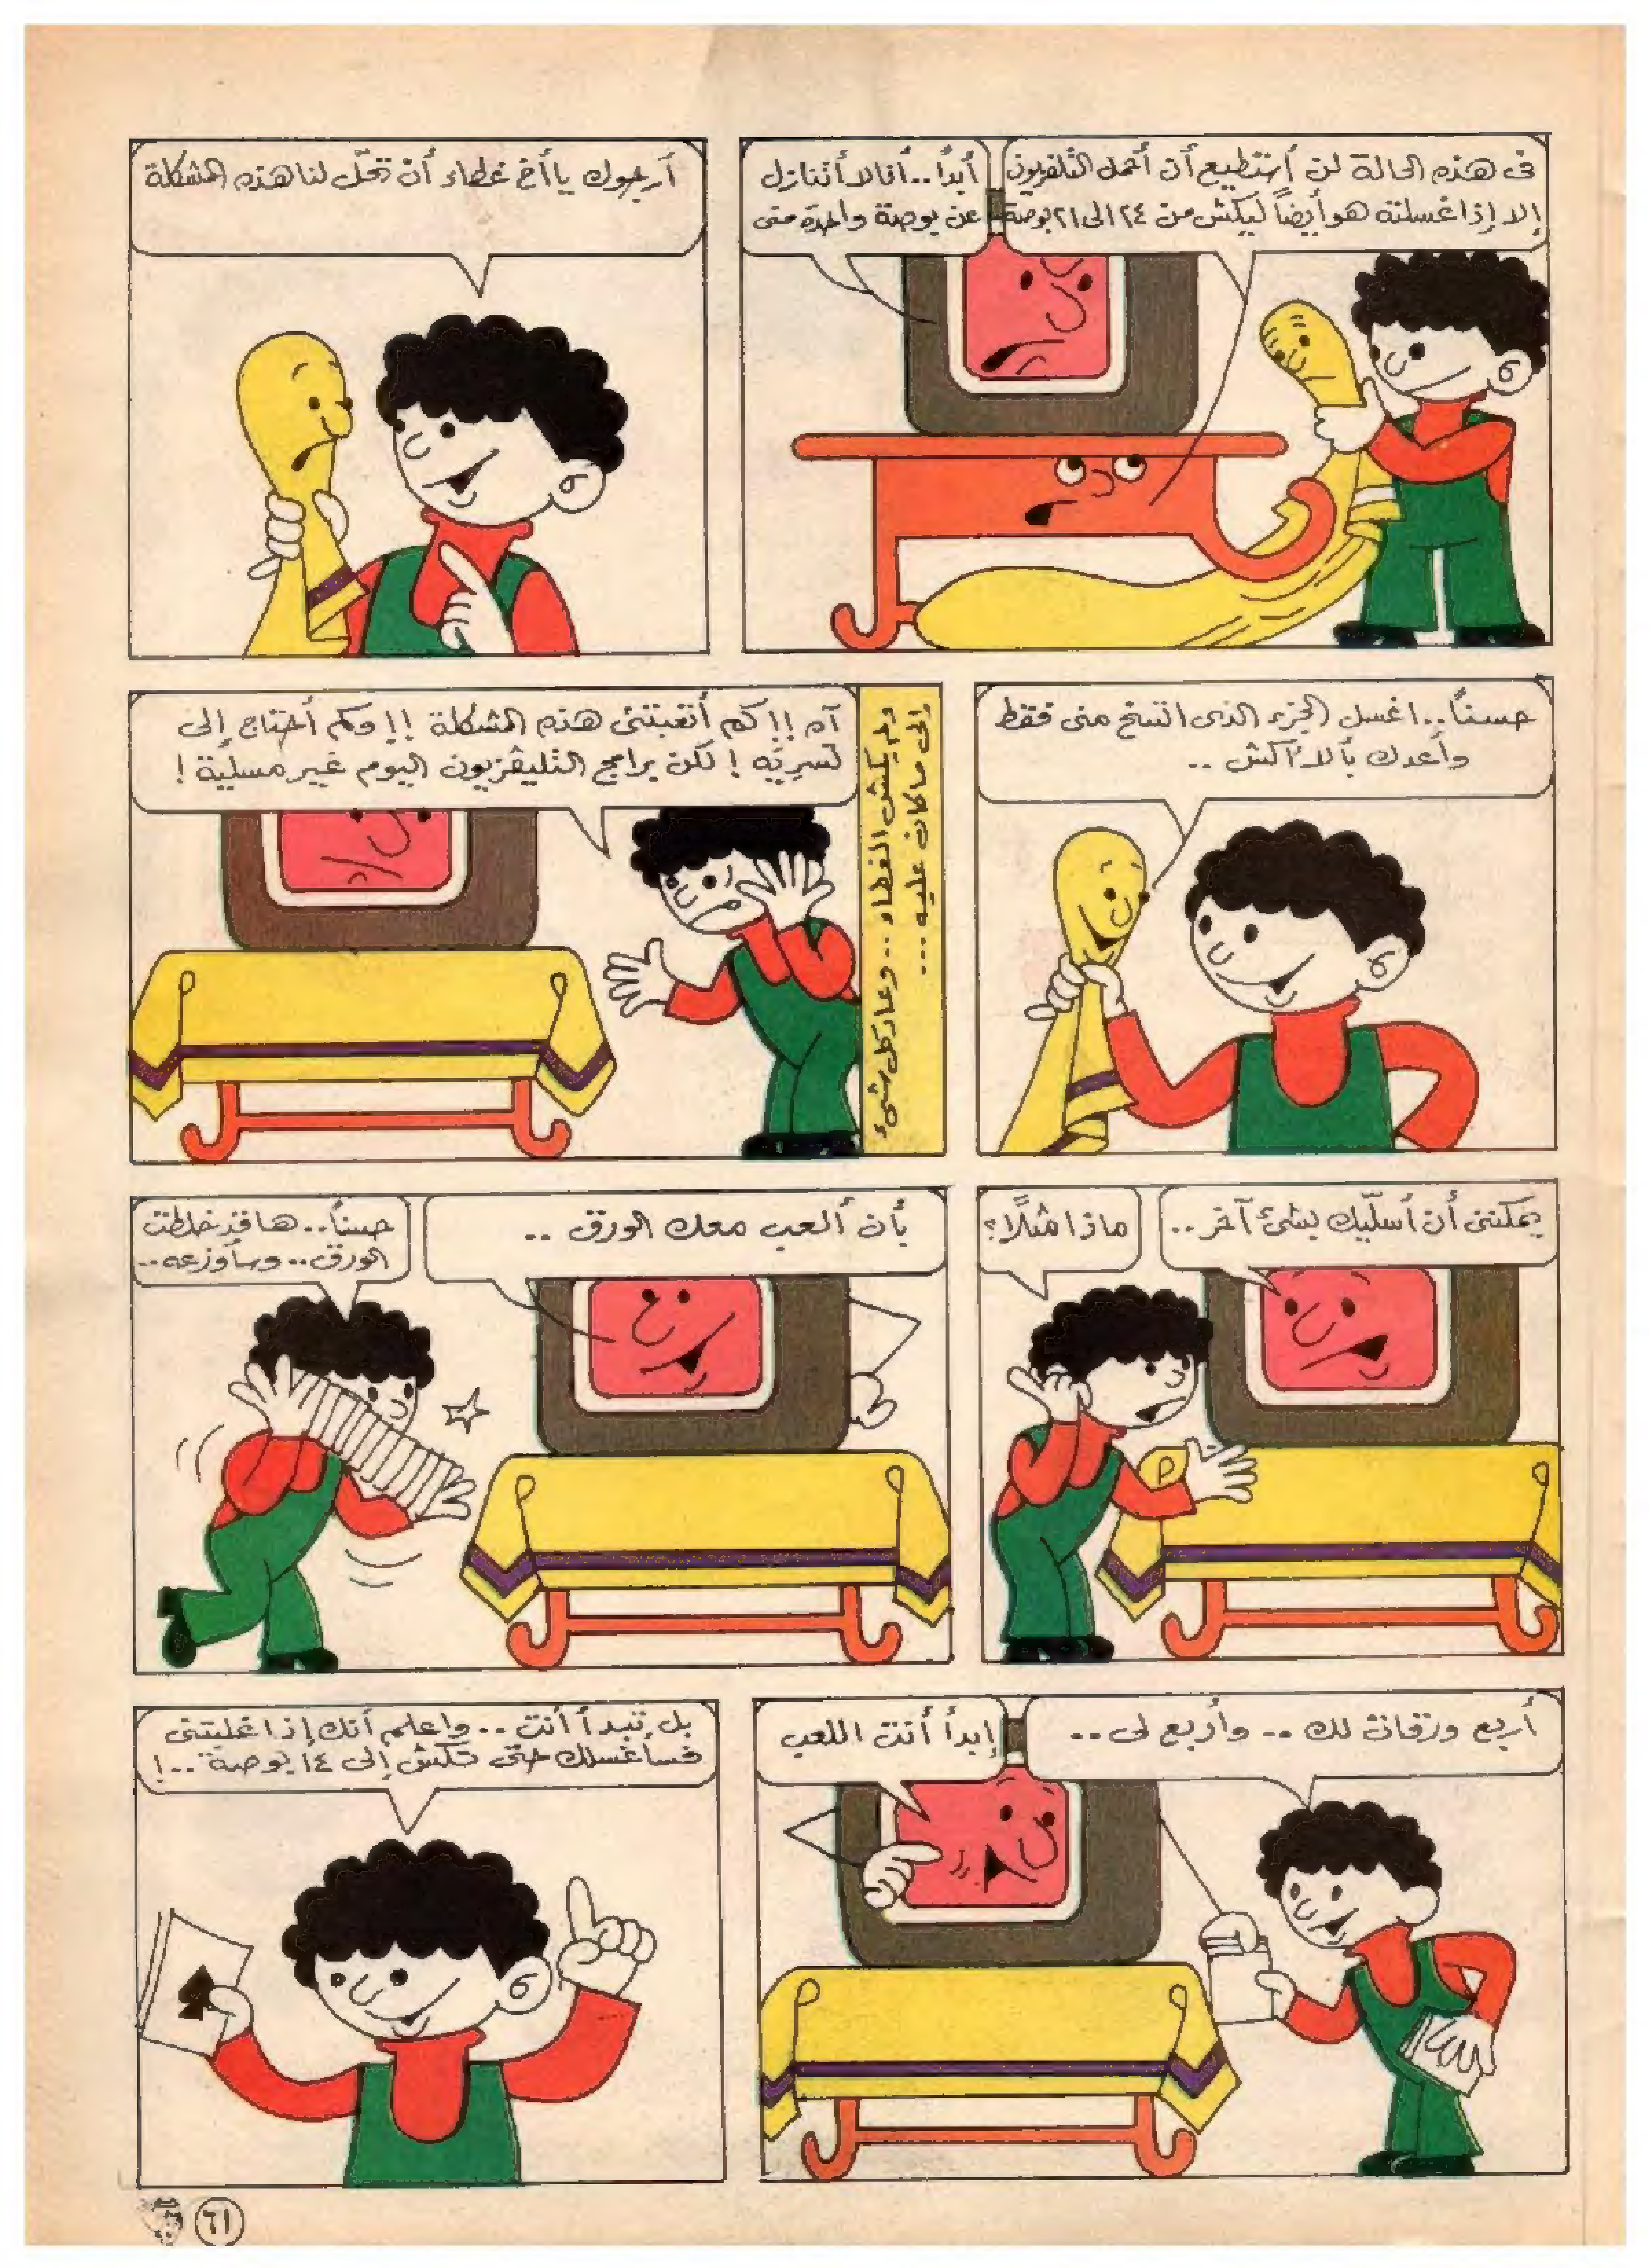 فى هذه الحالة لن أستطيع أن أحمل التلفزيون
إلا إذا غسلته هو أيضاً ليكش من ٢٤ الى ٢١ بوصة
أبداً.. أنا لا أتنازل
عن بوصة واحدة منى
أرجوك يا أخ غطاء أن تحلّ لنا هذه المشكلة
حسناً.. اغسل الجزء الذى اتسخ منى فقط
وأعدك بألا أكش ..
ولم يكش الغطاء .. وعاد كل شىء
إلى ما كان عليه ...
آه !! كم أتعبتنى هذه المشكلة !! وكم أحتاج إلى
تسرية ! لكن برامج التليفزيون اليوم غير مسلية !
يمكننى أن أسلّيك بشئ آخر ..
ماذا مثلاً ؟
بأن ألعب معك الورق ..
حسناً.. ها قد خلطت
الورق.. وسأوزعه..
أربع ورقات لك .. وأربع لى ..
إبدأ أنت اللعب
بل تبدأ أنت .. واعلم أنك إذا غلبتنى
فسأغسلك حتى تكش إلى ١٤ بوصة ..!
٦١